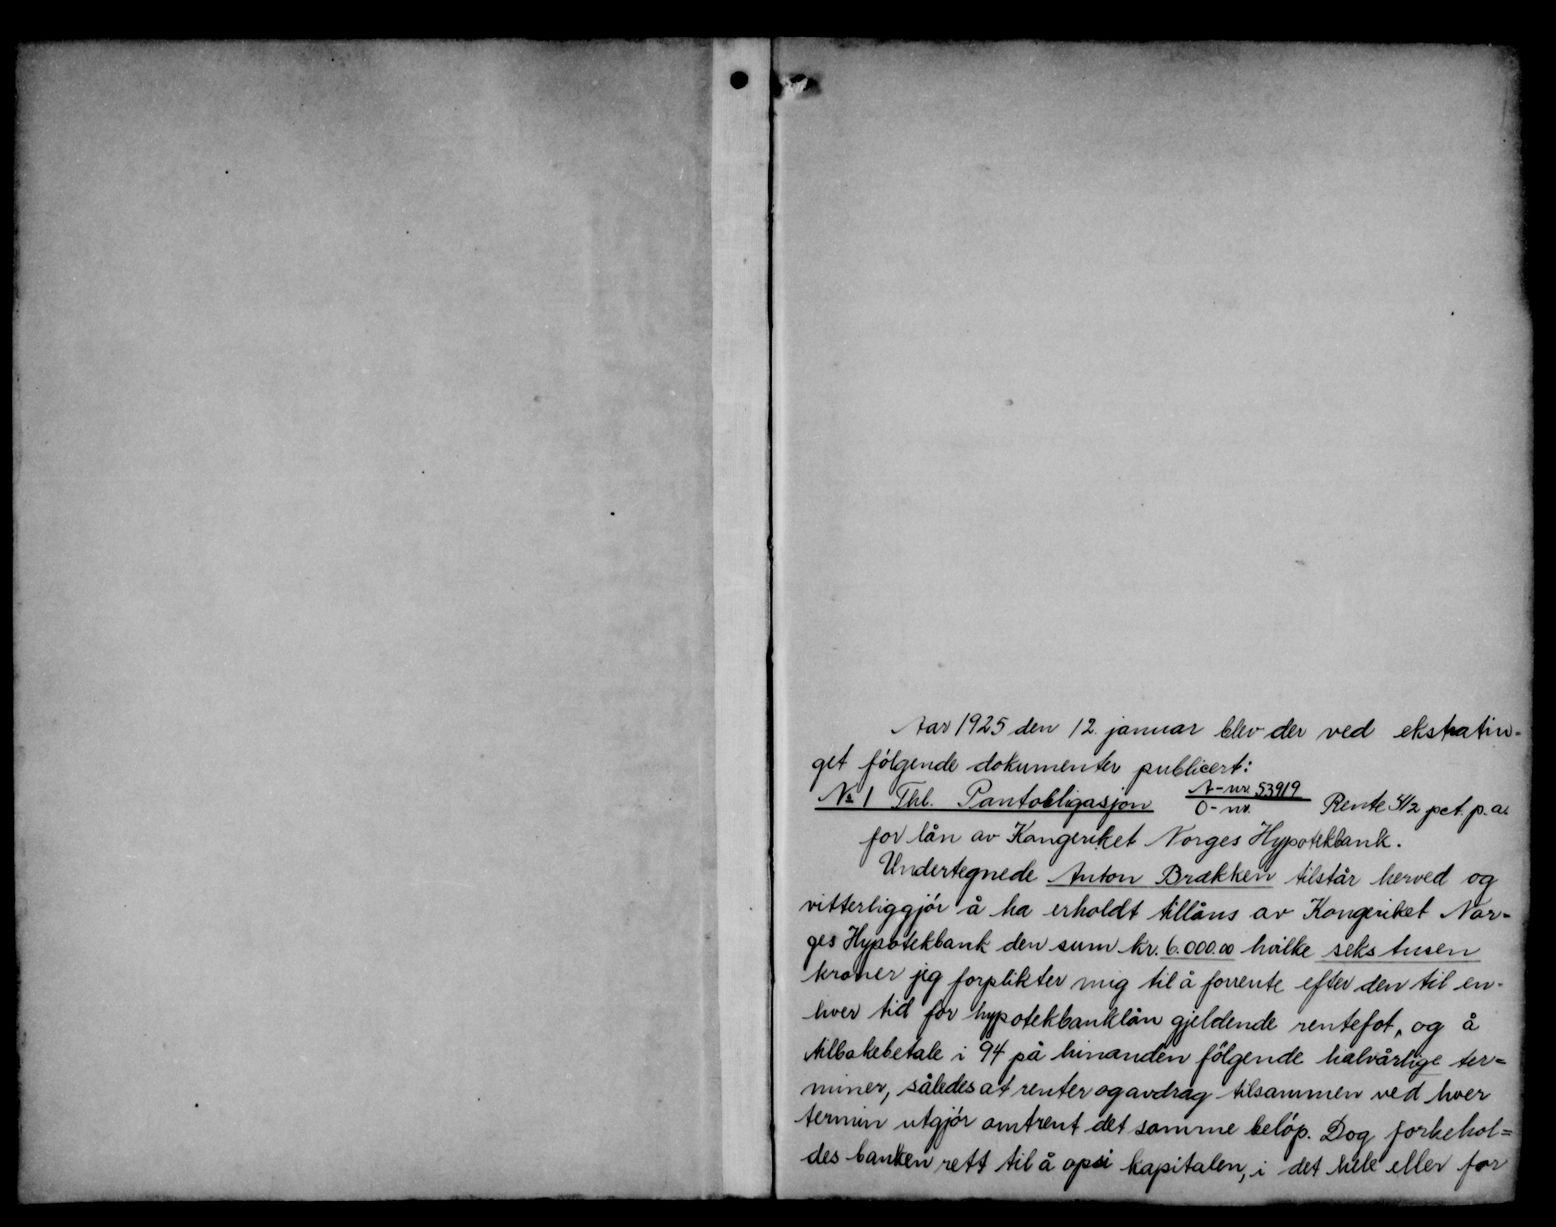 Aar 1925 den 12. januar blev der ved ekstratin-
get følgende dokumenter publicert:
No 1 Thl. Pantobligasjon A-nr. 53919 Rente 5 1/2 pct. p.a.
O-nr.
for lån av Kongeriket Norges Hypotekbank.
Undertegnede Anton Brækken tilstår herved og
vitterliggjør å ha erholdt tillåns av Kongeriket Nor-
ges Hypotekbank den sum kr. 6.000.00 hvilke seks tusen
kroner jeg forplikter mig til å forrente efter den til en-
hver tid for hypotekbanklån gjeldende rentefot, og å
tilbakebetale i 94 på hinanden følgende halvårlige ter-
miner, således at renter og avdrag tilsammen ved hver
termin utgjør omtrent det samme beløp. Dog forbehol-
des banken rett til å opsi kapitalen, i det hele eller for